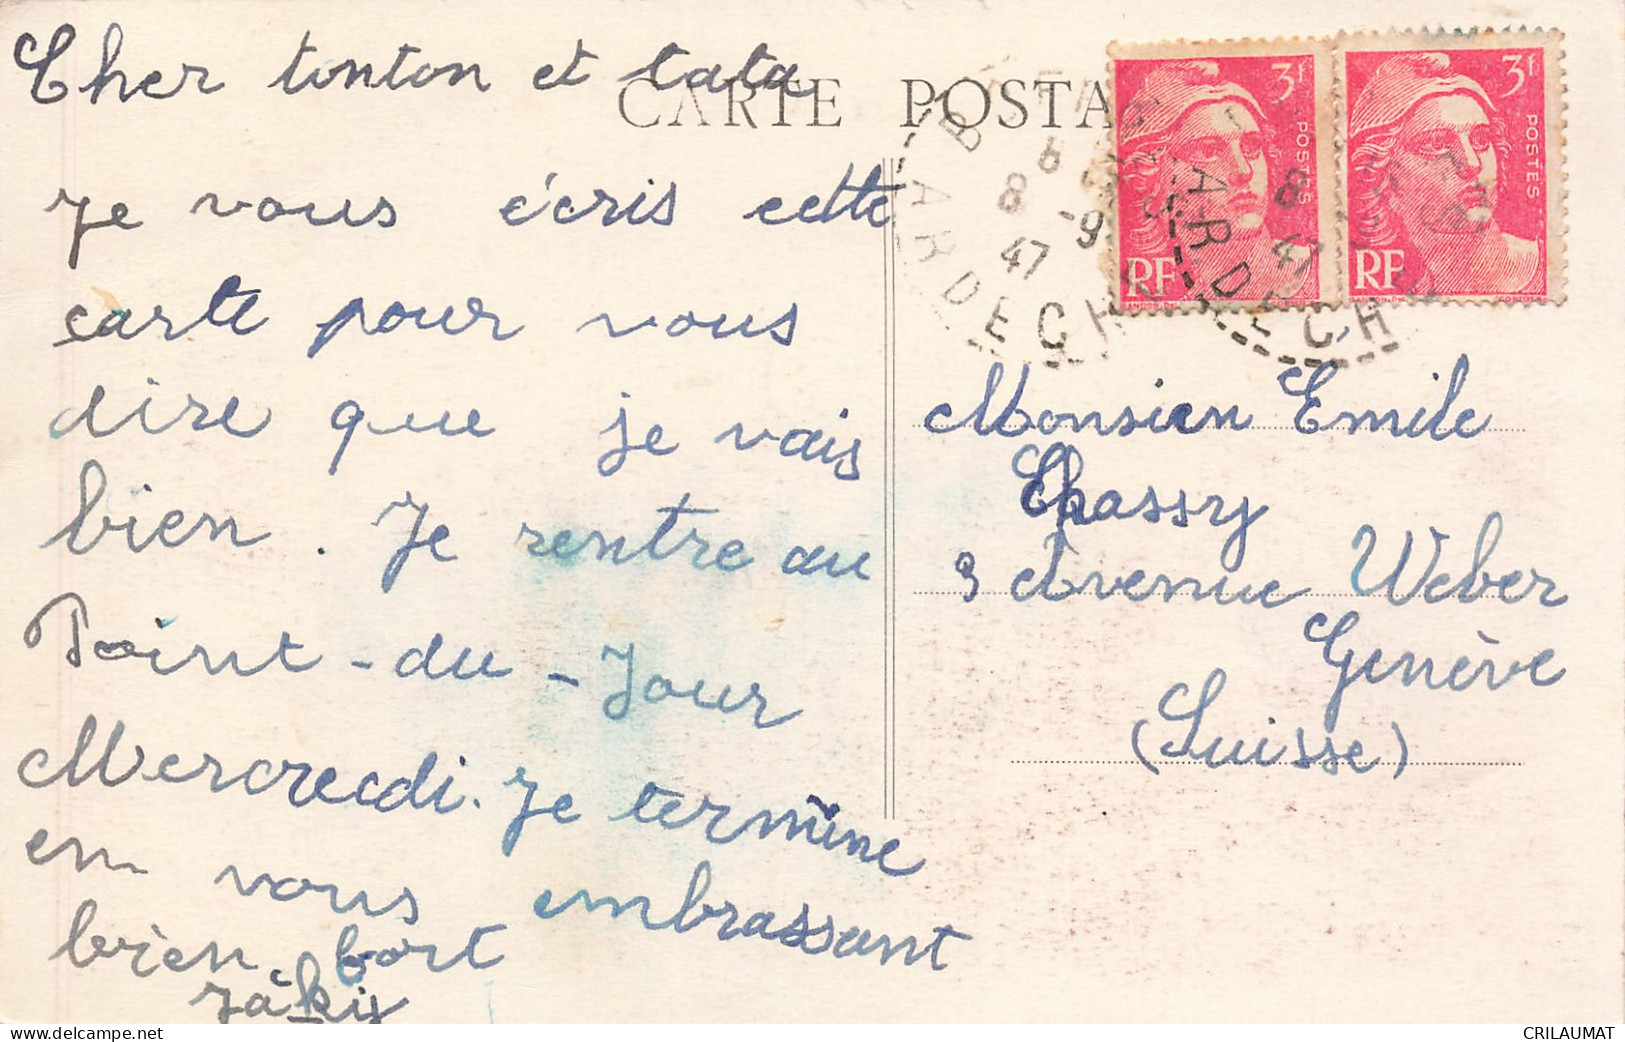 Cher tonton et tata
CARTE POSTA
je vous écris cette
carte pour vous
dire que je vais
bien. Je rentre au
Point-du-Jour
Mercrecdi. Je termine
en vous embrassant
bien fort
Jàky
3f
POSTES
RF
3f
POSTES
RF
8 -9
47
ARDECHE
8
47
ARDECH
Monsieu Émile
Chassy
9 Avenue Weber
Genève
(Suisse)
CRILAUMAT